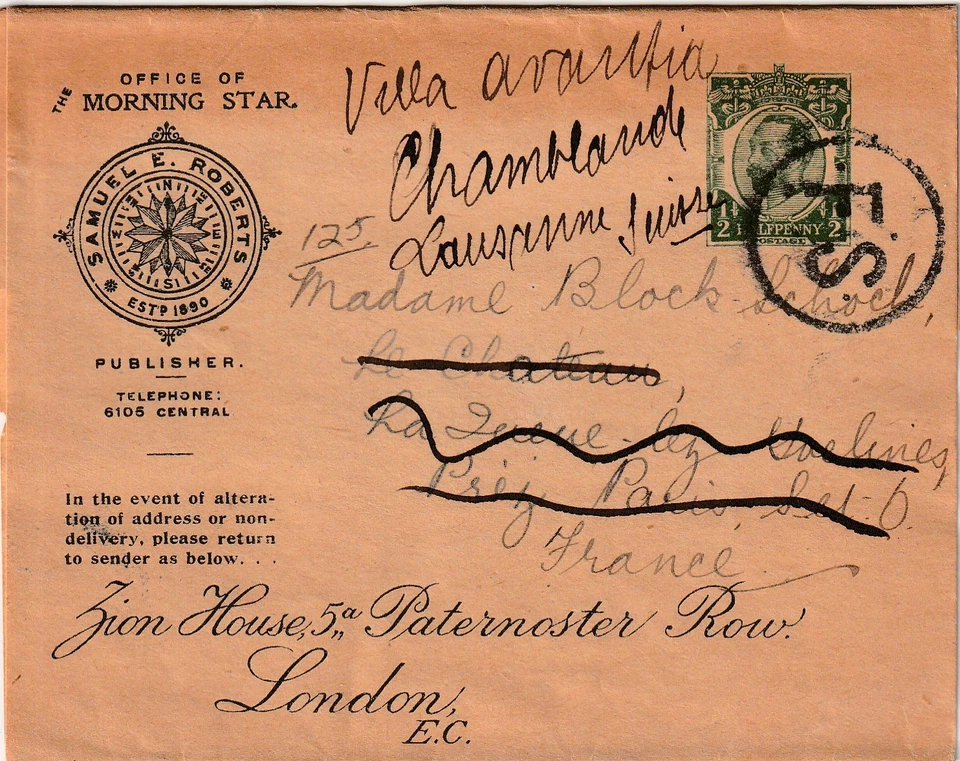 OFFICE OF
THE MORNING STAR.
SAMUEL E. ROBERTS
N E S W
ESTD 1890
PUBLISHER.
TELEPHONE:
6105 CENTRAL
In the event of altera-
tion of address or non-
delivery, please return
to sender as below. . .
Zion House, 5a Paternoster Row.
London,
E.C.
Villa
Chamblande
Lausanne Suisse
1/2 HALFPENNY 1/2
POSTAGE
F.S.
125.
Madame Block-Schoch,
Le Chateau,
La Queue-lez-Yvelines,
Préz Paris, S.et.O.
France